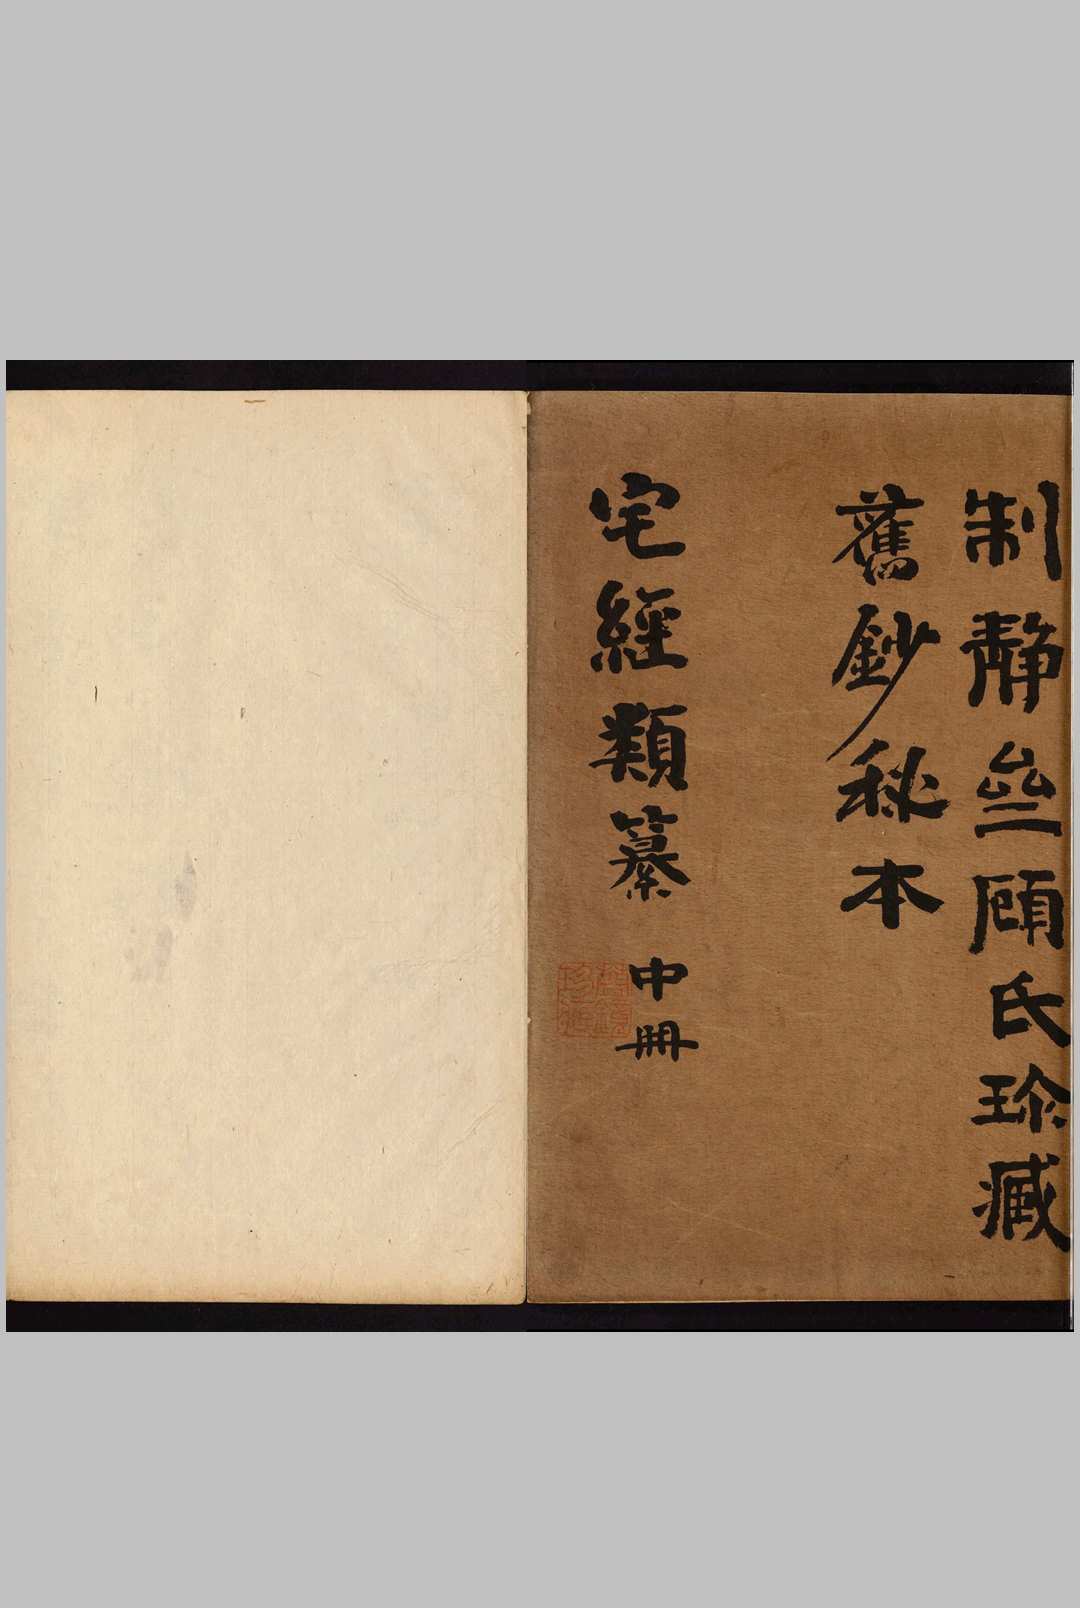 制静厽顧氏珍藏
舊鈔秘本
宅經類纂 中冊